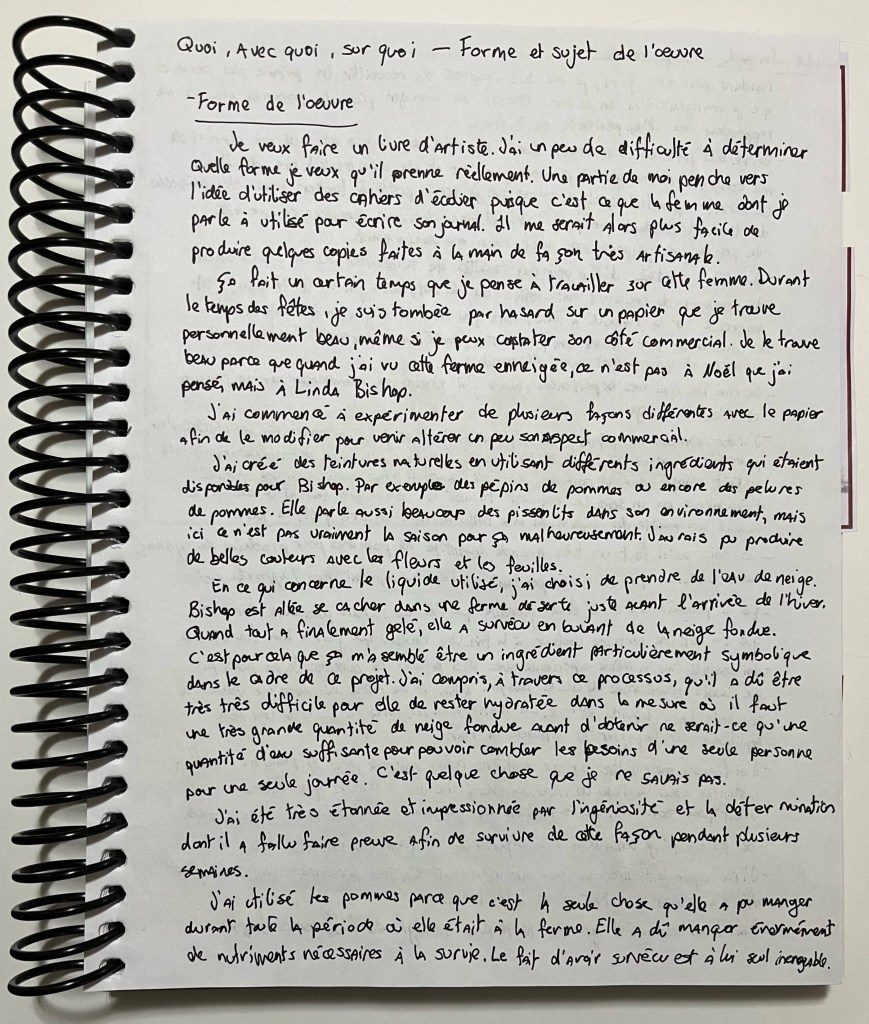 Quoi, Avec quoi, sur quoi — Forme et sujet de l'oeuvre
- Forme de l'oeuvre
Je veux faire un livre d'Artiste. J'ai un peu de difficulté à déterminer
Quelle forme je veux qu'il prenne réellement. Une partie de moi penche vers
l'idée d'utiliser des cahiers d'écolier puisque c'est ce que la femme dont je
parle à utilisé pour écrire son journal. Il me serait Alors plus facile de
produire quelques copies faites à la main de façon très Artisanale.
Ça fait un certain temps que je pense à travailler sur cette femme. Durant
le temps des fêtes, je suis tombée par hasard sur un papier que je trouve
personnellement beau, même si je peux constater son côté commercial. Je le trouve
beau parce que quand j'ai vu cette ferme enneigée, ce n'est pas à Noël que j'ai
pensé, mais à Linda Bishop.
J'ai commencé à expérimenter de plusieurs façons différentes avec le papier
afin de le modifier pour venir altérer un peu son aspect commercial.
J'ai créé des teintures naturelles en utilisant différents ingrédients qui étaient
disponibles pour Bishop. Par exemple des pépins de pommes ou encore des pelures
de pommes. Elle parle aussi beaucoup des pissenlits dans son environnement, mais
ici ce n'est pas vraiment la saison pour ça malheureusement. J'aurais pu produire
de belles couleurs avec les fleurs et les feuilles.
En ce qui concerne le liquide utilisé, j'ai choisi de prendre de l'eau de neige.
Bishop est allée se cacher dans une ferme déserte juste avant l'arrivée de l'hiver.
Quand tout a finalement gelé, elle a survécu en buvant de la neige fondue.
C'est pour cela que ça m'a semblé être un ingrédient particulièrement symbolique
dans le cadre de ce projet. J'ai compris, à travers ce processus, qu'il a dû être
très très difficile pour elle de rester hydratée dans la mesure où il faut
une très grande quantité de neige fondue avant d'obtenir ne serait-ce qu'une
quantité d'eau suffisante pour pouvoir combler les besoins d'une seule personne
pour une seule journée. C'est quelque chose que je ne savais pas.
J'ai été très étonnée et impressionnée par l'ingéniosité et la détermination
dont il a fallu faire preuve afin de survivre de cette façon pendant plusieurs
semaines.
J'ai utilisé les pommes parce que c'est la seule chose qu'elle a pu manger
durant toute la période où elle était à la ferme. Elle a dû manquer énormément
de nutriments nécessaires à la survie. Le fait d'avoir survécu est à lui seul incroyable.